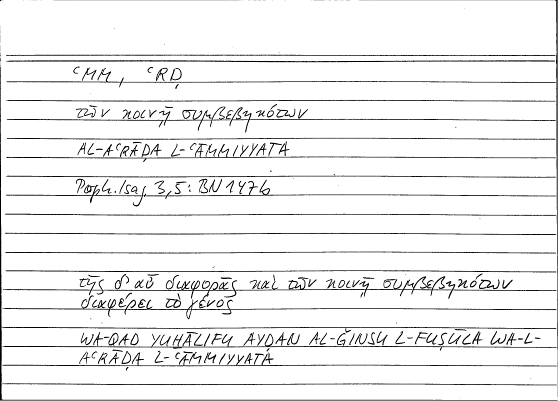 ᶜMM, ᶜRḌ
τῶν κοινῇ συμβεβηκότων
AL-AᶜRĀḌA L-ᶜĀMMIYYATA
Porph. Isag. 3,5: BN 147b
τῆς δ' αὖ διαφορᾶς καὶ τῶν κοινῇ συμβεβηκότων
διαφέρει τὸ γένος
WA-QAD YUḪĀLIFU AYḌAN AL-ǦINSU L-FUṢŪLA WA-L-
AᶜRĀḌA L-ᶜĀMMIYYATA